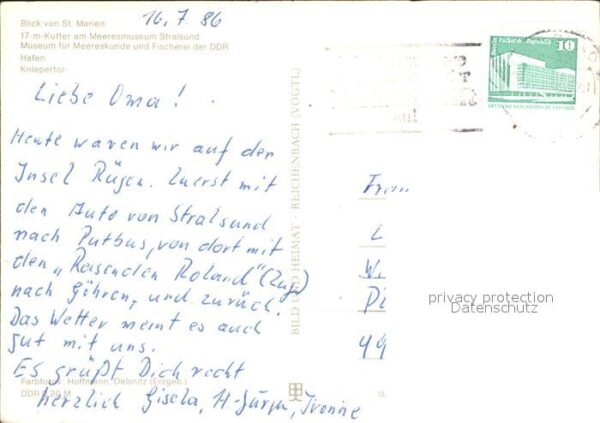 16.7.86
Blick von St. Marien
17-m-Kutter am Meeresmuseum Stralsund
Museum für Meereskunde und Fischerei der DDR
Hafen
Kniepertor
Liebe Oma!
Heute waren wir auf der
Insel Rügen. Zuerst mit
den Auto von Stralsund
nach Putbus, von dort mit
den „Rasenden Roland" (Zug)
nach Göhren, und zurück.
Das Wetter meint es auch
gut mit uns.
Es grüßt Dich recht
herzlich Gisela, H-Jürgen, Ivonne
Farbfotos: Hoffmann, Oelsnitz (Erzgeb.)
DDR 0,20 M
BILD UND HEIMAT · REICHENBACH (VOGTL)
Berlin, Palast d. Republik
10
Frau
W.
99
privacy protection
Datenschutz